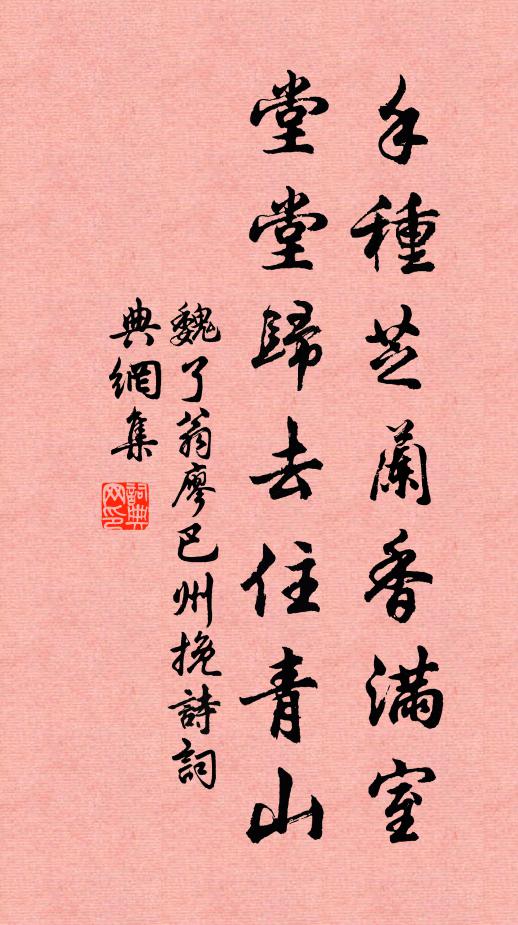 手種芝蘭香滿室
堂堂歸去住青山
魏了翁廖巴州挽詩詞
典網集
詞典
网印